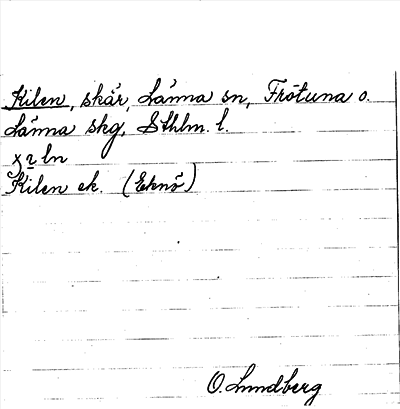 Kilen, skär, Länna sn, Frötuna o.
Länna skg, Sthlm. l.
Kilen ek. (Eknö)
O. Lundberg